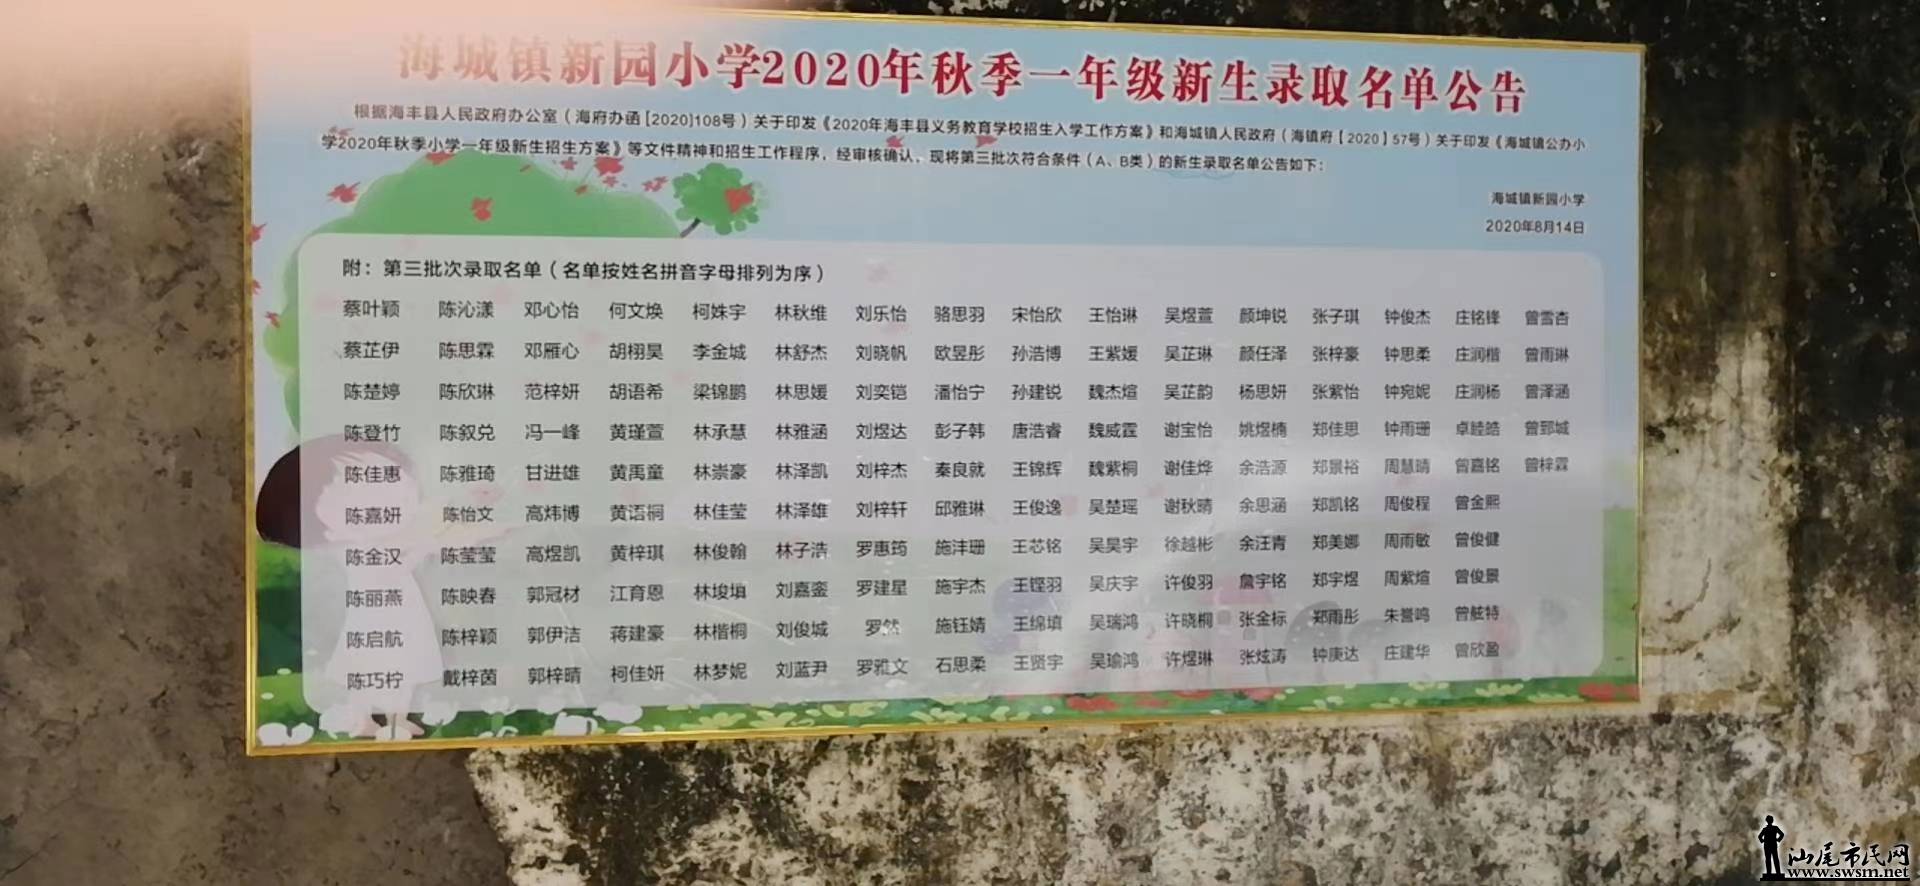 海城镇新园小学2020年秋季一年级新生录取名单公告
根据海丰县人民政府办公室（海府办函[2020]108号）关于印发《2020年海丰县义务教育学校招生入学工作方案》和海城镇人民政府（海镇府【2020】57号）关于印发《海城镇公办小
学2020年秋季小学一年级新生招生方案》等文件精神和招生工作程序，经审核确认，现将第三批次符合条件（A、B类）的新生录取名单公告如下：
海城镇新园小学
2020年8月14日
附：第三批次录取名单（名单按姓名拼音字母排列为序）
蔡叶颖 陈沁漾 邓心怡 何文焕 柯姝宇 林秋维 刘乐怡 骆思羽 宋怡欣 王怡琳 吴煜萱 颜坤锐 张子琪 钟俊杰 庄铭锋 曾雪杏
蔡芷伊 陈思霖 邓雁心 胡栩昊 李金城 林舒杰 刘晓帆 欧昱彤 孙浩博 王紫媛 吴芷琳 颜任泽 张梓豪 钟思柔 庄润楷 曾雨琳
陈楚婷 陈欣琳 范梓妍 胡语希 梁锦鹏 林思媛 刘奕铠 潘怡宁 孙建锐 魏杰煊 吴芷韵 杨思妍 张紫怡 钟宛妮 庄润杨 曾泽涵
陈登竹 陈叙兑 冯一峰 黄瑾萱 林承慧 林雅涵 刘煜达 彭子韩 唐浩睿 魏威霆 谢宝怡 姚煜楠 郑佳思 钟雨珊 卓睦皓 曾郅城
陈佳惠 陈雅琦 甘进雄 黄禹童 林崇豪 林泽凯 刘梓杰 秦良就 王锦辉 魏紫桐 谢佳烨 余浩源 郑景裕 周慧晴 曾嘉铭 曾梓霖
陈嘉妍 陈怡文 高炜博 黄语桐 林佳莹 林泽雄 刘梓轩 邱雅琳 王俊逸 吴楚瑶 谢秋晴 余思涵 郑凯铭 周俊程 曾金熙
陈金汉 陈莹莹 高煜凯 黄梓琪 林俊翰 林子浩 罗惠筠 施沣珊 王芯铭 吴昊宇 徐越彬 余汪青 郑美娜 周雨敏 曾俊健
陈丽燕 陈映春 郭冠材 江育恩 林埈填 刘嘉銮 罗建星 施宇杰 王铿羽 吴庆宇 许俊羽 詹宇铭 郑宇煜 周紫煊 曾俊景
陈启航 陈梓颖 郭伊洁 蒋建豪 林楷桐 刘俊城 罗然 施钰婧 王绵填 吴瑞鸿 许晓桐 张金标 郑雨彤 朱誉鸣 曾舷特
陈巧柠 戴梓茵 郭梓晴 柯佳妍 林梦妮 刘蓝尹 罗雅文 石思柔 王贤宇 吴瑜鸿 许煜琳 张炫涛 钟庚达 庄建华 曾欣盈
汕尾市民网
www.swsm.net